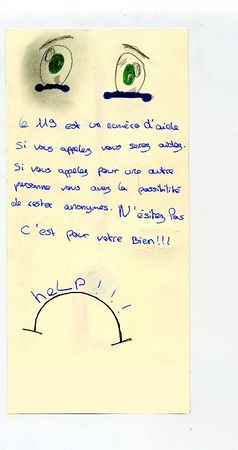 Le 119 est un numéro d'aide
Si vous appelez vous serez aidez.
Si vous appelez pour une autre
personne vous avez la possibilité
de rester anonymes. N'ésitez Pas
C'est pour votre Bien!!!
heLP!!!!